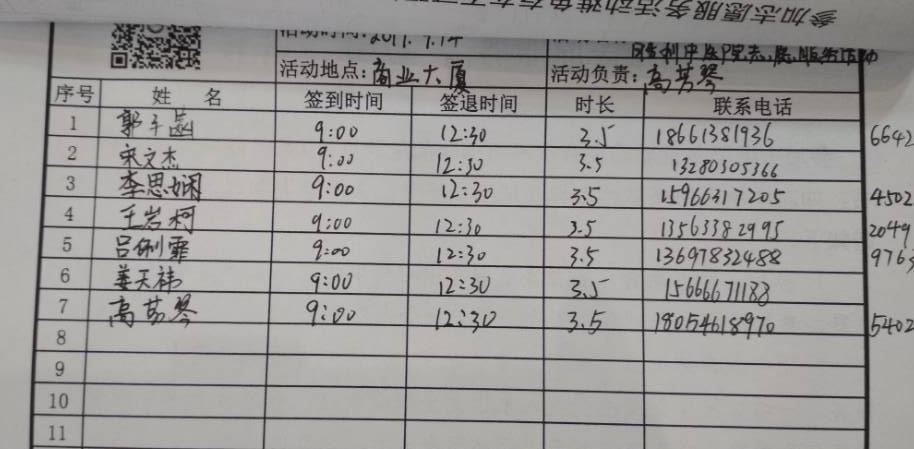 参加志愿服务活动难免存在不可
活动时间:2017.9.14
活动地点:商业大厦 活动负责:高艿琴
序号 姓名 签到时间 签退时间 时长 联系电话
1 郭子菡 9:00 12:30 3.5 18661381936 6642
2 宋文杰 9:00 12:30 3.5 13280305366
3 李思娴 9:00 12:30 3.5 15966317205 4502
4 王岩柯 9:00 12:30 3.5 13563382995 2049
5 吕俐霏 9:00 12:30 3.5 13697832488 976
6 姜天祎 9:00 12:30 3.5 15666671188
7 高艿琴 9:00 12:30 3.5 18054618970 5402
8
9
10
11